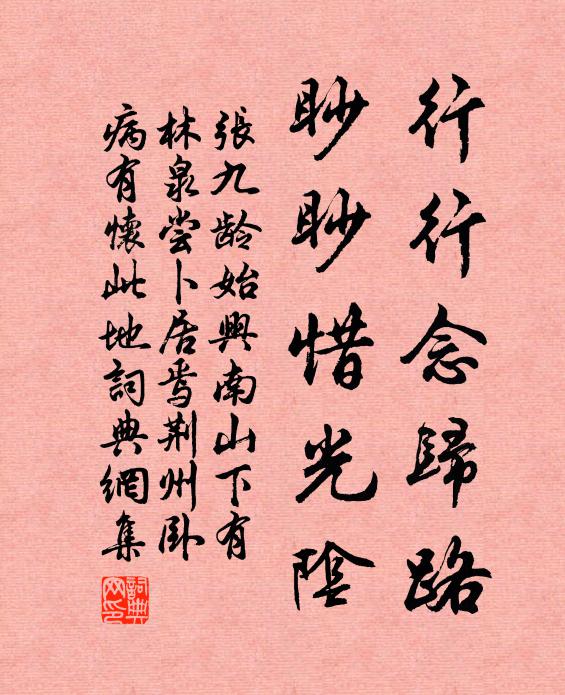 行行念歸路
眇眇惜光陰
張九齡始興南山下有
林泉嘗卜居焉荆州臥
病有懷此地詞典網集
詞典网印